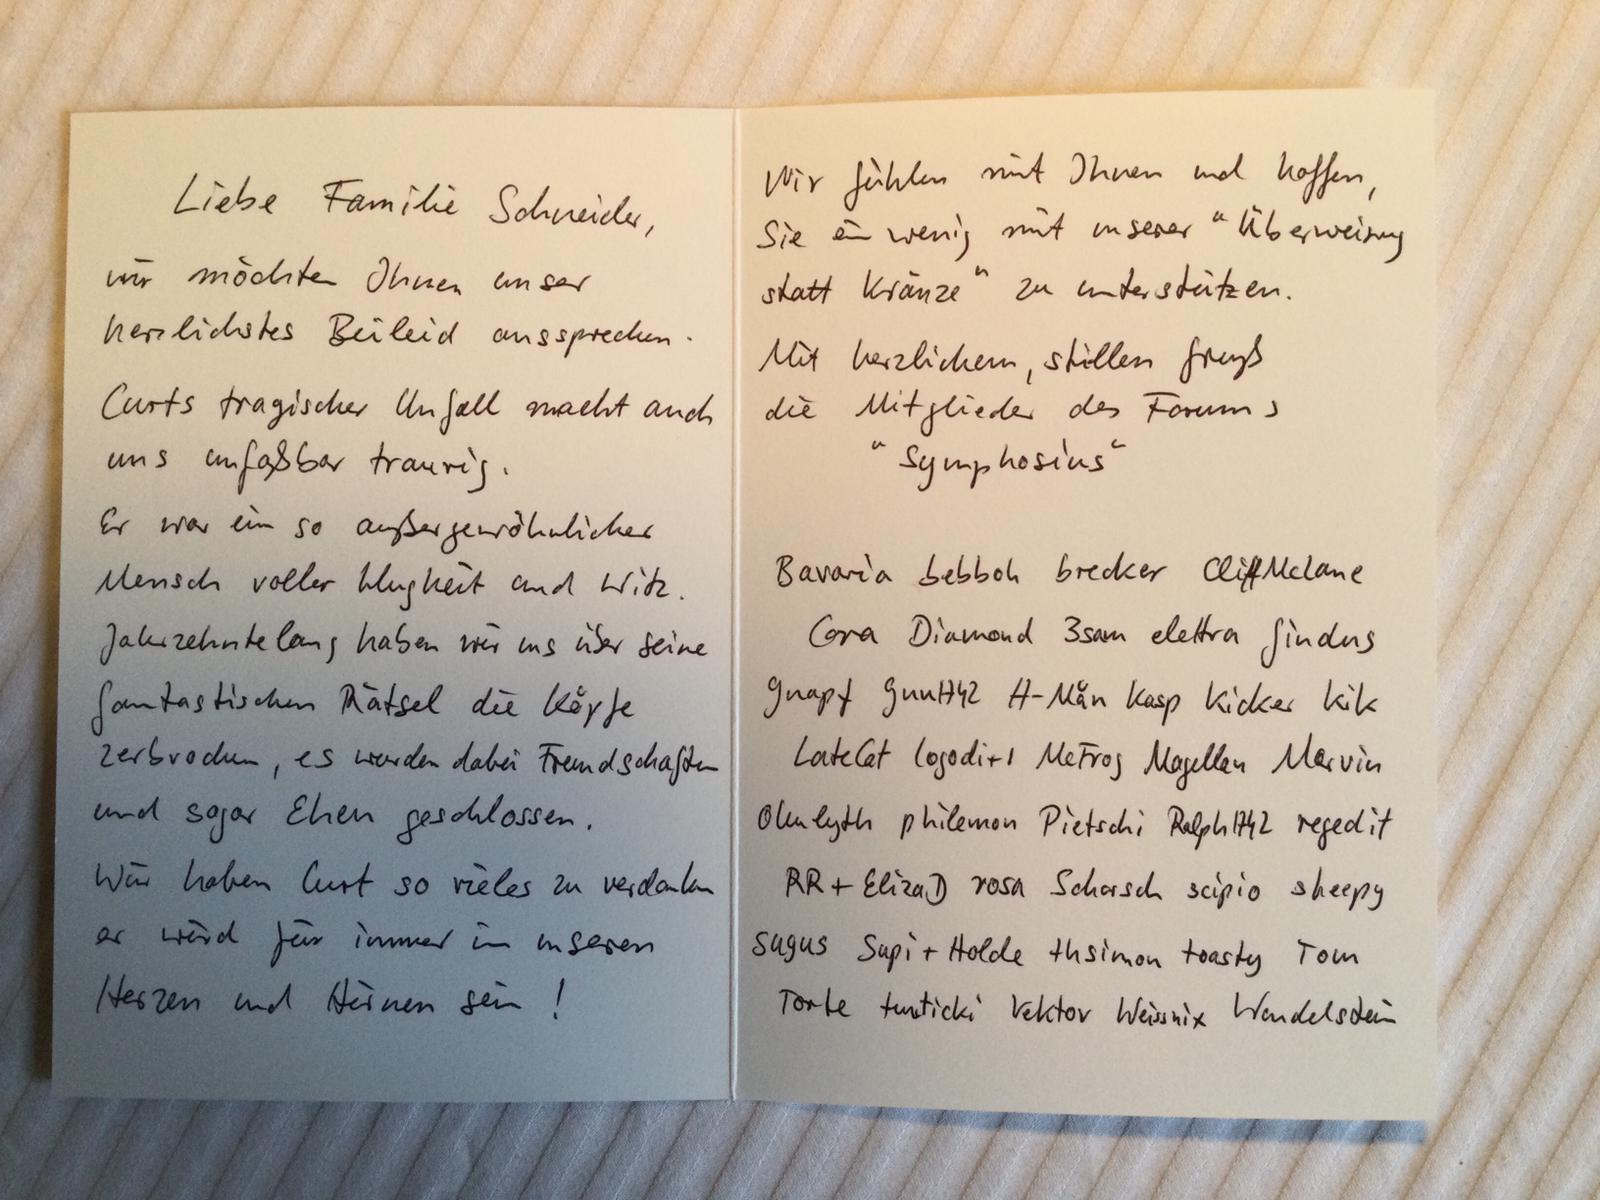 Liebe Familie Schneider,
wir möchten Ihnen unser
herzlichstes Beileid aussprechen.
Curts tragischer Unfall macht auch
uns unfaßbar traurig.
Er war ein so außergewöhnlicher
Mensch voller Klugheit und Witz.
Jahrzehntelang haben wir uns über seine
fantastischen Rätsel die Köpfe
zerbrochen, es wurden dabei Freundschaften
und sogar Ehen geschlossen.
Wir haben Curt so vieles zu verdanken
er wird für immer in unseren
Herzen und Hirnen sein!
Wir fühlen mit Ihnen und hoffen,
Sie ein wenig mit unserer "Überweisung
statt Kränze" zu unterstützen.
Mit herzlichem, stillen Gruß
die Mitglieder des Forums
"Symphosius"
Bavaria bebboh brecker CliffMcLane
Cora Diamond 3sam elettra findus
gnapf gnuH42 H-Mån Kasp Kicker Kik
LateCat McFrog Magellan Marvin
philemon Pietschi Ralph1742 regedit
RR + ElizaD rosa Schorsch scipio sheepy
sugus Supi + Holde thsimon toasty Tom
Torte Vektor Weissnix Wendelstein